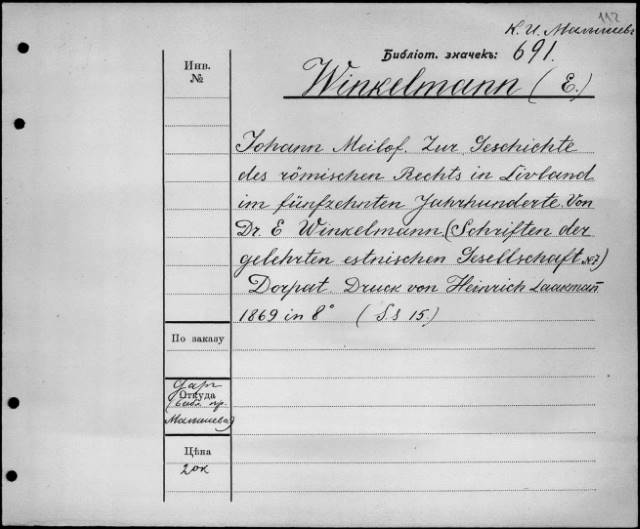 112
К. И. Малышевъ
Библіот. значекъ: 691.
Инв.
№
Winkelmann (E.)
Johann Meilof. Zur Geschichte
des römischen Rechts in Livland
im fünfzehnten Jahrhunderte. Von
Dr. E Winkelmann (Schriften der
gelehrten estnischen Gesellschaft №7)
Dorpat. Druck von Heinrich Laakmañ
1869 in 8° (S.S 15.)
По заказу
Даръ
Откуда
(библ. пр.
Малышева)
Цѣна
20к